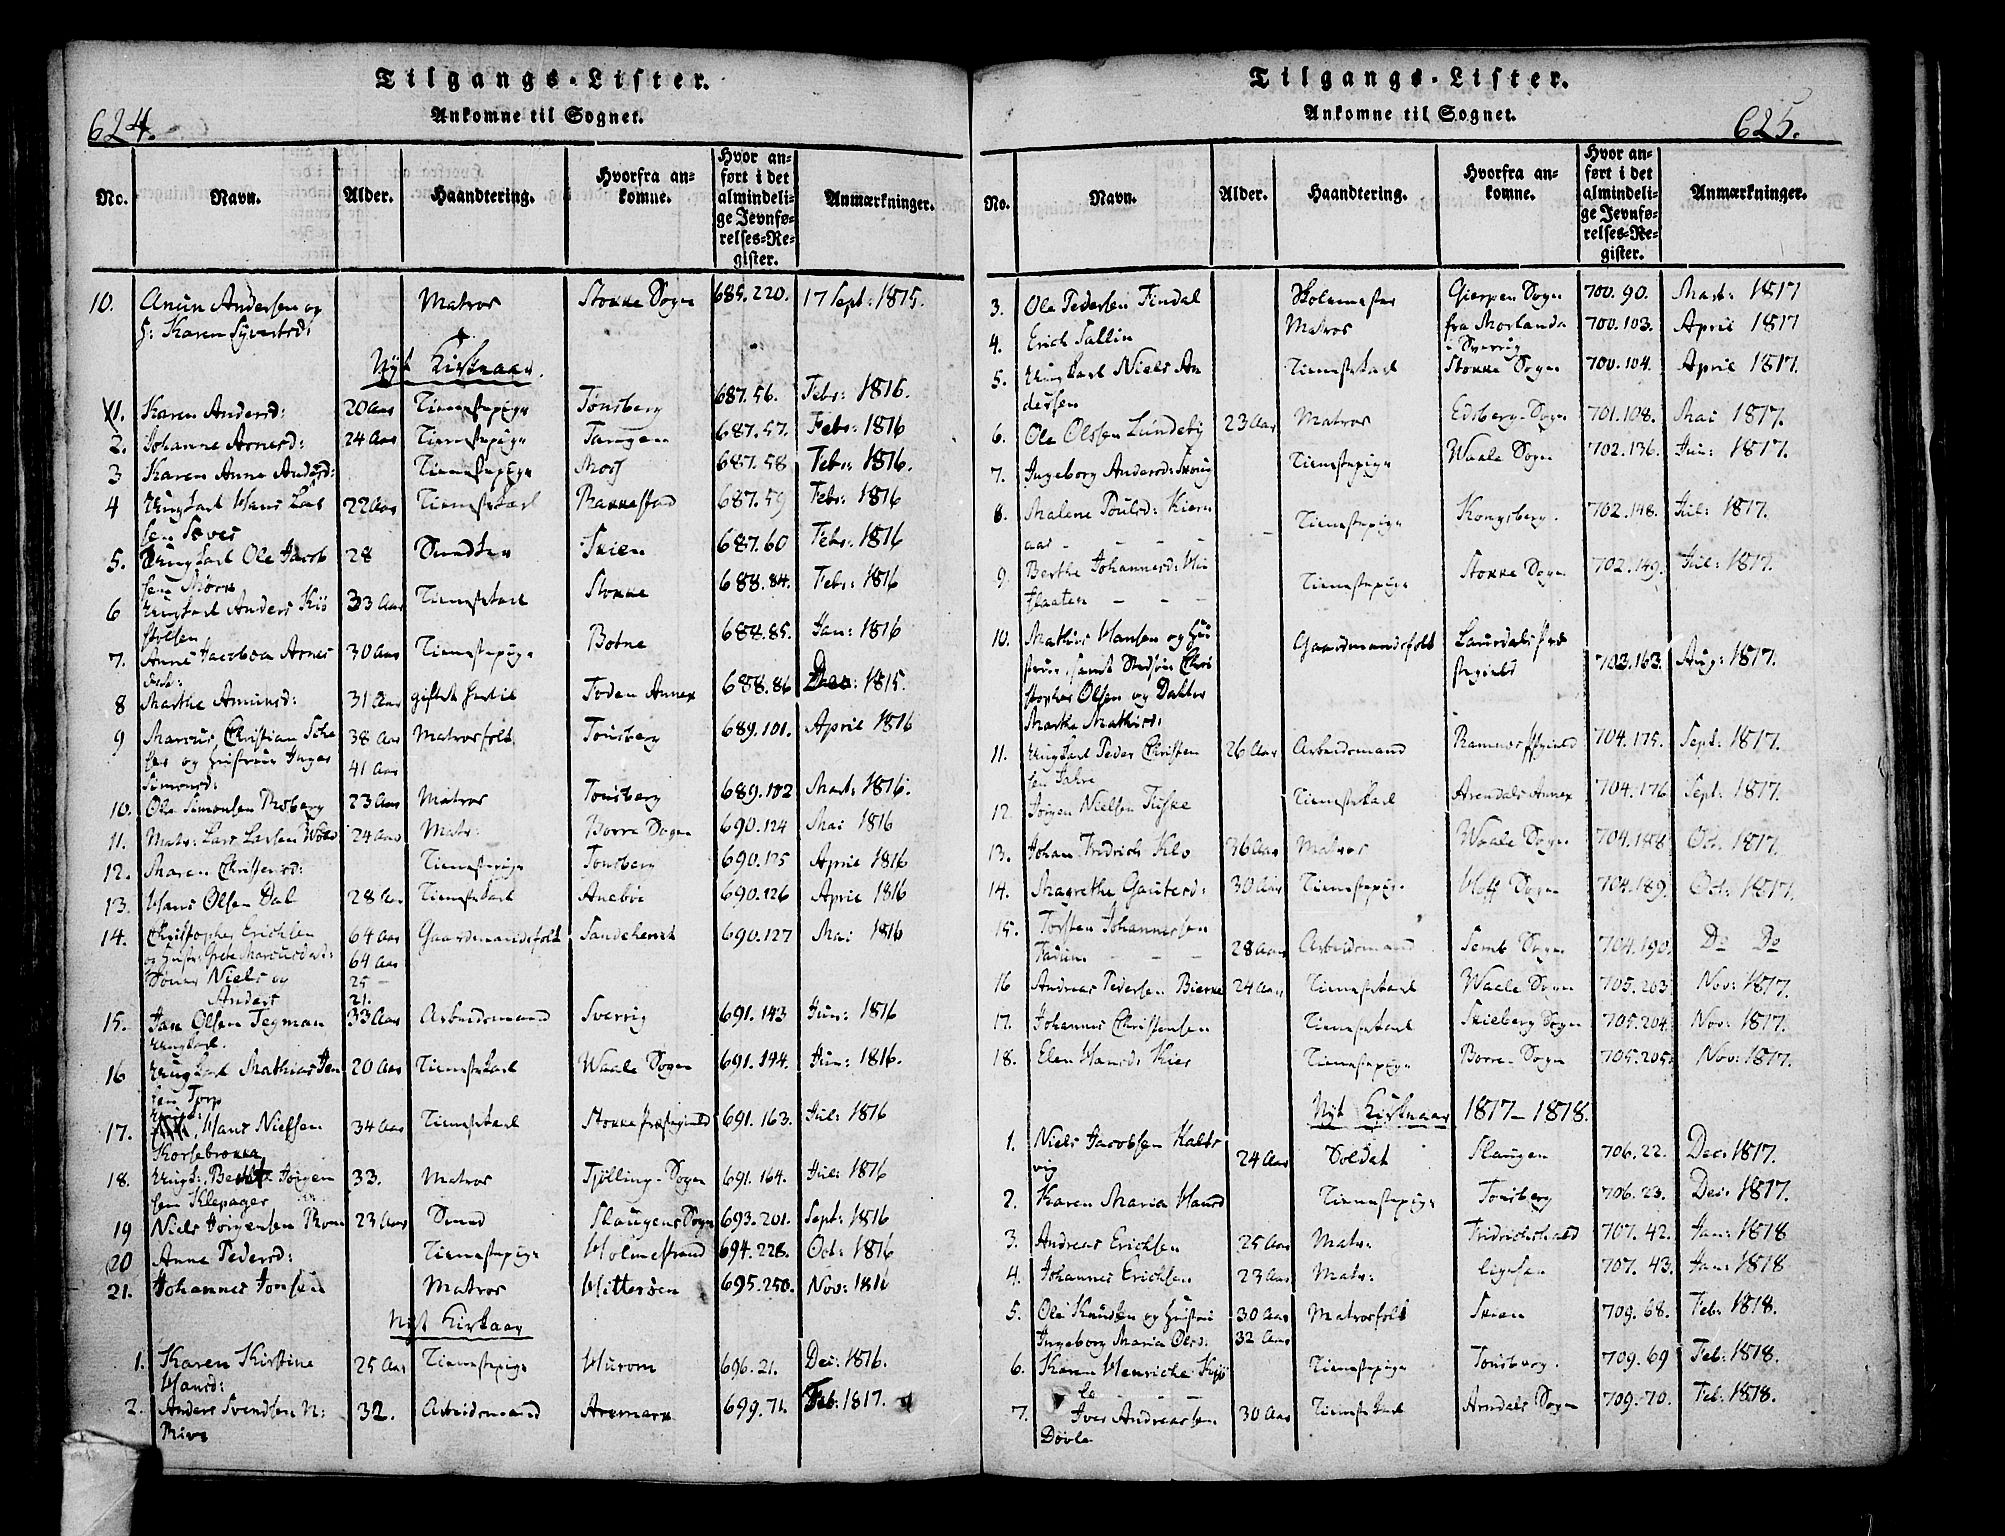 Tilgangs-Lister.
Ankomne til Sognet.
624.
No. Navn. Alder. Haandtering. Hvorfra ankomne. Hvor anført i det almindelige Jevnførelses-Register. Anmærkninger.
10. Amun Andersen og Matros Stokke Sogn 685.220. 17 Sept: 1815.
H: Karen Syvertsd:
Nyt Kirkeaar.
1. Karen Andersd: 20 Aar Tienestepige Tønsberg 687.56. Febr: 1816.
2. Johanne Arnesd: 24 Aar Tienestepige 687.57. Febr: 1816
3 Karen Anne Andersd: Tienestepige Moss 687.58 Febr: 1816.
4 Ungkarl Hans Lar 22 Aar Tienestekarl Rakkestad 687.59 Febr: 1816
sen
5. Ungkarl Ole Jacob 28 Skien 687.60 Febr: 1816
sen Mørk
6 Ungkarl Anders Kiø 33 Aar Tienestekarl Stokke 688.84. Febr: 1816
stelsen
7. Anne Jacobea Arnes 30 Aar Tienestepige Botne 688.85. Jan: 1816
datr:
8 Marthe Amunsd: 31 Aar gift Foden Annex 688.86 Dec: 1815.
9 Marcus Christian 38 Aar Matrosfolk Tønsberg 689.101. April 1816
og Hustrue Inger 41 Aar
Simonsd:
10. Ole Simonsen Roberg 23 Aar Matros Tønsberg 689.102 Mart: 1816.
11. Matr: Lars Larsen 24 Aar Matr: Borre Sogn 690.124 Mai 1816
12. Maren Christensd: Tienestepige Tønsberg 690.125 April 1816
13. Hans Olsen Dal 28 Aar Tienestekarl Anebøe 690.126 April 1816
14. Christopher Erichsen 64 Aar Gaardmandsfolk Sandeherret 690.127 Mai 1816
og Hustr: Grete Marcusdatr: 64 Aar
Sønner Niels og 25 –
Anders 21.
15. Jan Olsen Tegman 33 Aar Arbeidsmand Sverrig 691.143 Jun: 1816
Ungkarl.
16 Ungkarl Mathias Jen 20 Aar Tienestekarl Waale Sogn 691.144. Jun: 1816.
sen Torp
17. Ungk: Hans Nielsen 34 Aar Tienestekarl Stokke Præstegield 691.163. Jul: 1816
Korsebrekke
18. Ungk: Bernt Jørgen 33. Matros Tjølling-Sogn 691.164. Jul: 1816
sen Klepager
19 Niels Jørgensen 23 Aar Smed Slaugens Sogn 693.201. Sept: 1816
20 Anne Pedersd: Tienestepige Holmestrand 694.228. Oct: 1816
21. Johannes Jonsen Matros Hitterøen 695.250. Nov: 1816
Nyt Kirkaar
1. Karen Kirstine 25 Aar Tienestepige Hurom 696.21. Dec: 1816.
Hansd:
2. Anders Svendsen N: 32. Arbeidsmand Aremark 699.71. Feb: 1817.
Rive
Tilgangs-Lister.
Ankomne til Sognet.
625.
No. Navn. Alder. Haandtering. Hvorfra ankomne. Hvor anført i det almindelige Jevnførelses-Register. Anmærkninger.
3. Ole Pedersen Findal Skolemester Gierpen Sogn 700.90. Mart: 1817
4. Erich Sallin Matros fra Morlanda 700.103. April 1817
i Sverrig
5. Ungkarl Niels An Tienestekarl Stokke Sogn 700.104. April 1817.
dersen
6. Ole Olssen Lundeby 23 Aar Matros Edsberg-Sogn 701.108. Mai 1817.
7. Ingeborg Andersd: Skoug Tienestepige Waale Sogn 702.136. Jun: 1817.
8. Malene Poulsd: Kiern Tienestepige Kongsberg. 702.148. Jul: 1817.
aas – – – –
9. Berthe Johannesd: Tienestepige Stokke Sogn 702.149. Jul: 1817.
flaaten – – –
10. Mathis Hansen og Hu Gaardmandsfolk Laurdals Præ 703.163. Aug: 1817.
strue, samt Stedsøn Chri stegield
stopher Olsen og Datter
Marthe Mathisd:
11. Ungkarl Peder Christen 26 Aar Arbeidsmand Ramnes Pgield 704.175. Sept: 1817.
sen Jahre
12. Jørgen Nielsen Fuske Tienestekarl Arendals Annex 704.176 Sept: 1817.
13. Johan Fredrich Klo 36 Aar Matros Waale Sogn 704.188 Oct: 1817.
14. Magrethe Gautesd: 30 Aar Tienestepige Hoff Sogn 704.189. Oct: 1817.
15. Torsten Johannessen 28 Aar Arbeidsmand Semb Sogn 704.190. Do Do
Fadum – – –
16 Andreas Pedersen Bierke 24 Aar Tienestekarl Waale Sogn 705.203 Nov: 1817.
17. Johannes Christensen Tienestekarl Skieberg Sogn 705.204. Nov: 1817.
18. Elen Hansd: Kier Tienestepige Borre-Sogn 705.205. Nov: 1817.
Nyt Kirkeaar 1817–1818.
1. Niels Jacobsen Kalts 24 Aar Soldat Slaugen 706.22. Dec: 1817.
vig
2. Karen Maria Hansd Tienestepige Tønsberg 706.23. Dec: 1817.
3. Andreas Erichsen 25 Aar Matr: Fridrichshald 707.42. Jan: 1818
4. Johannes Erichsen 23 Aar Matr: 707.43. Jan: 1818
5. Ole Knudsen og Hustrue 30 Aar Matrosfolk Skien 709.68. Feb: 1818.
Ingeborg Maria Olsd: 32 Aar
6. Karen Henricke Tienestepige Tønsberg. 709.69 Feb: 1818.
7. Iver Andreassen 30 Aar Tienestekarl Arndals Sogn 709.70. Feb: 1818.
Døvle